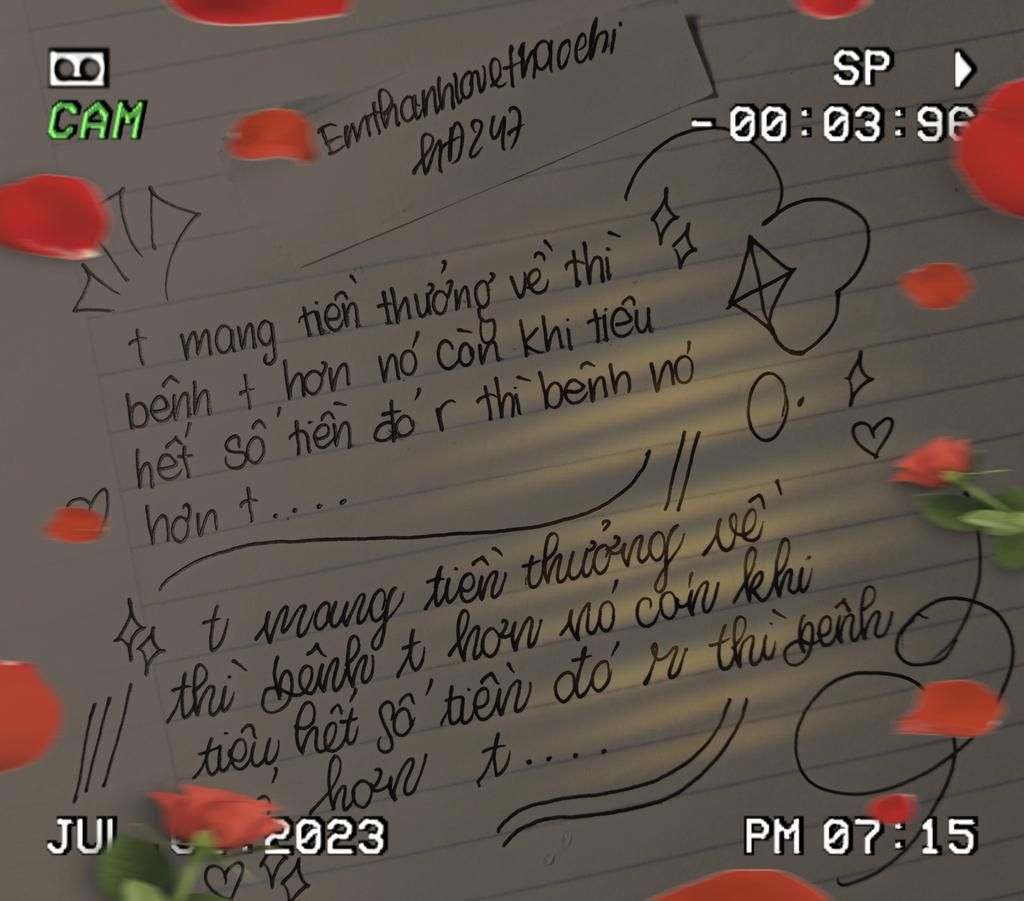 CAM
SP
-00:03:96
Emthanhlovethaochi
247
t mang tiền thưởng về thì
bênh t hơn nó còn khi tiêu
hết số tiền đó r thì bênh nó
hơn t....
t mang tiền thưởng về
thì bênh t hơn nó còn khi
tiêu hết số tiền đó r thì bênh
hơn t....
JUL 2023
PM 07:15